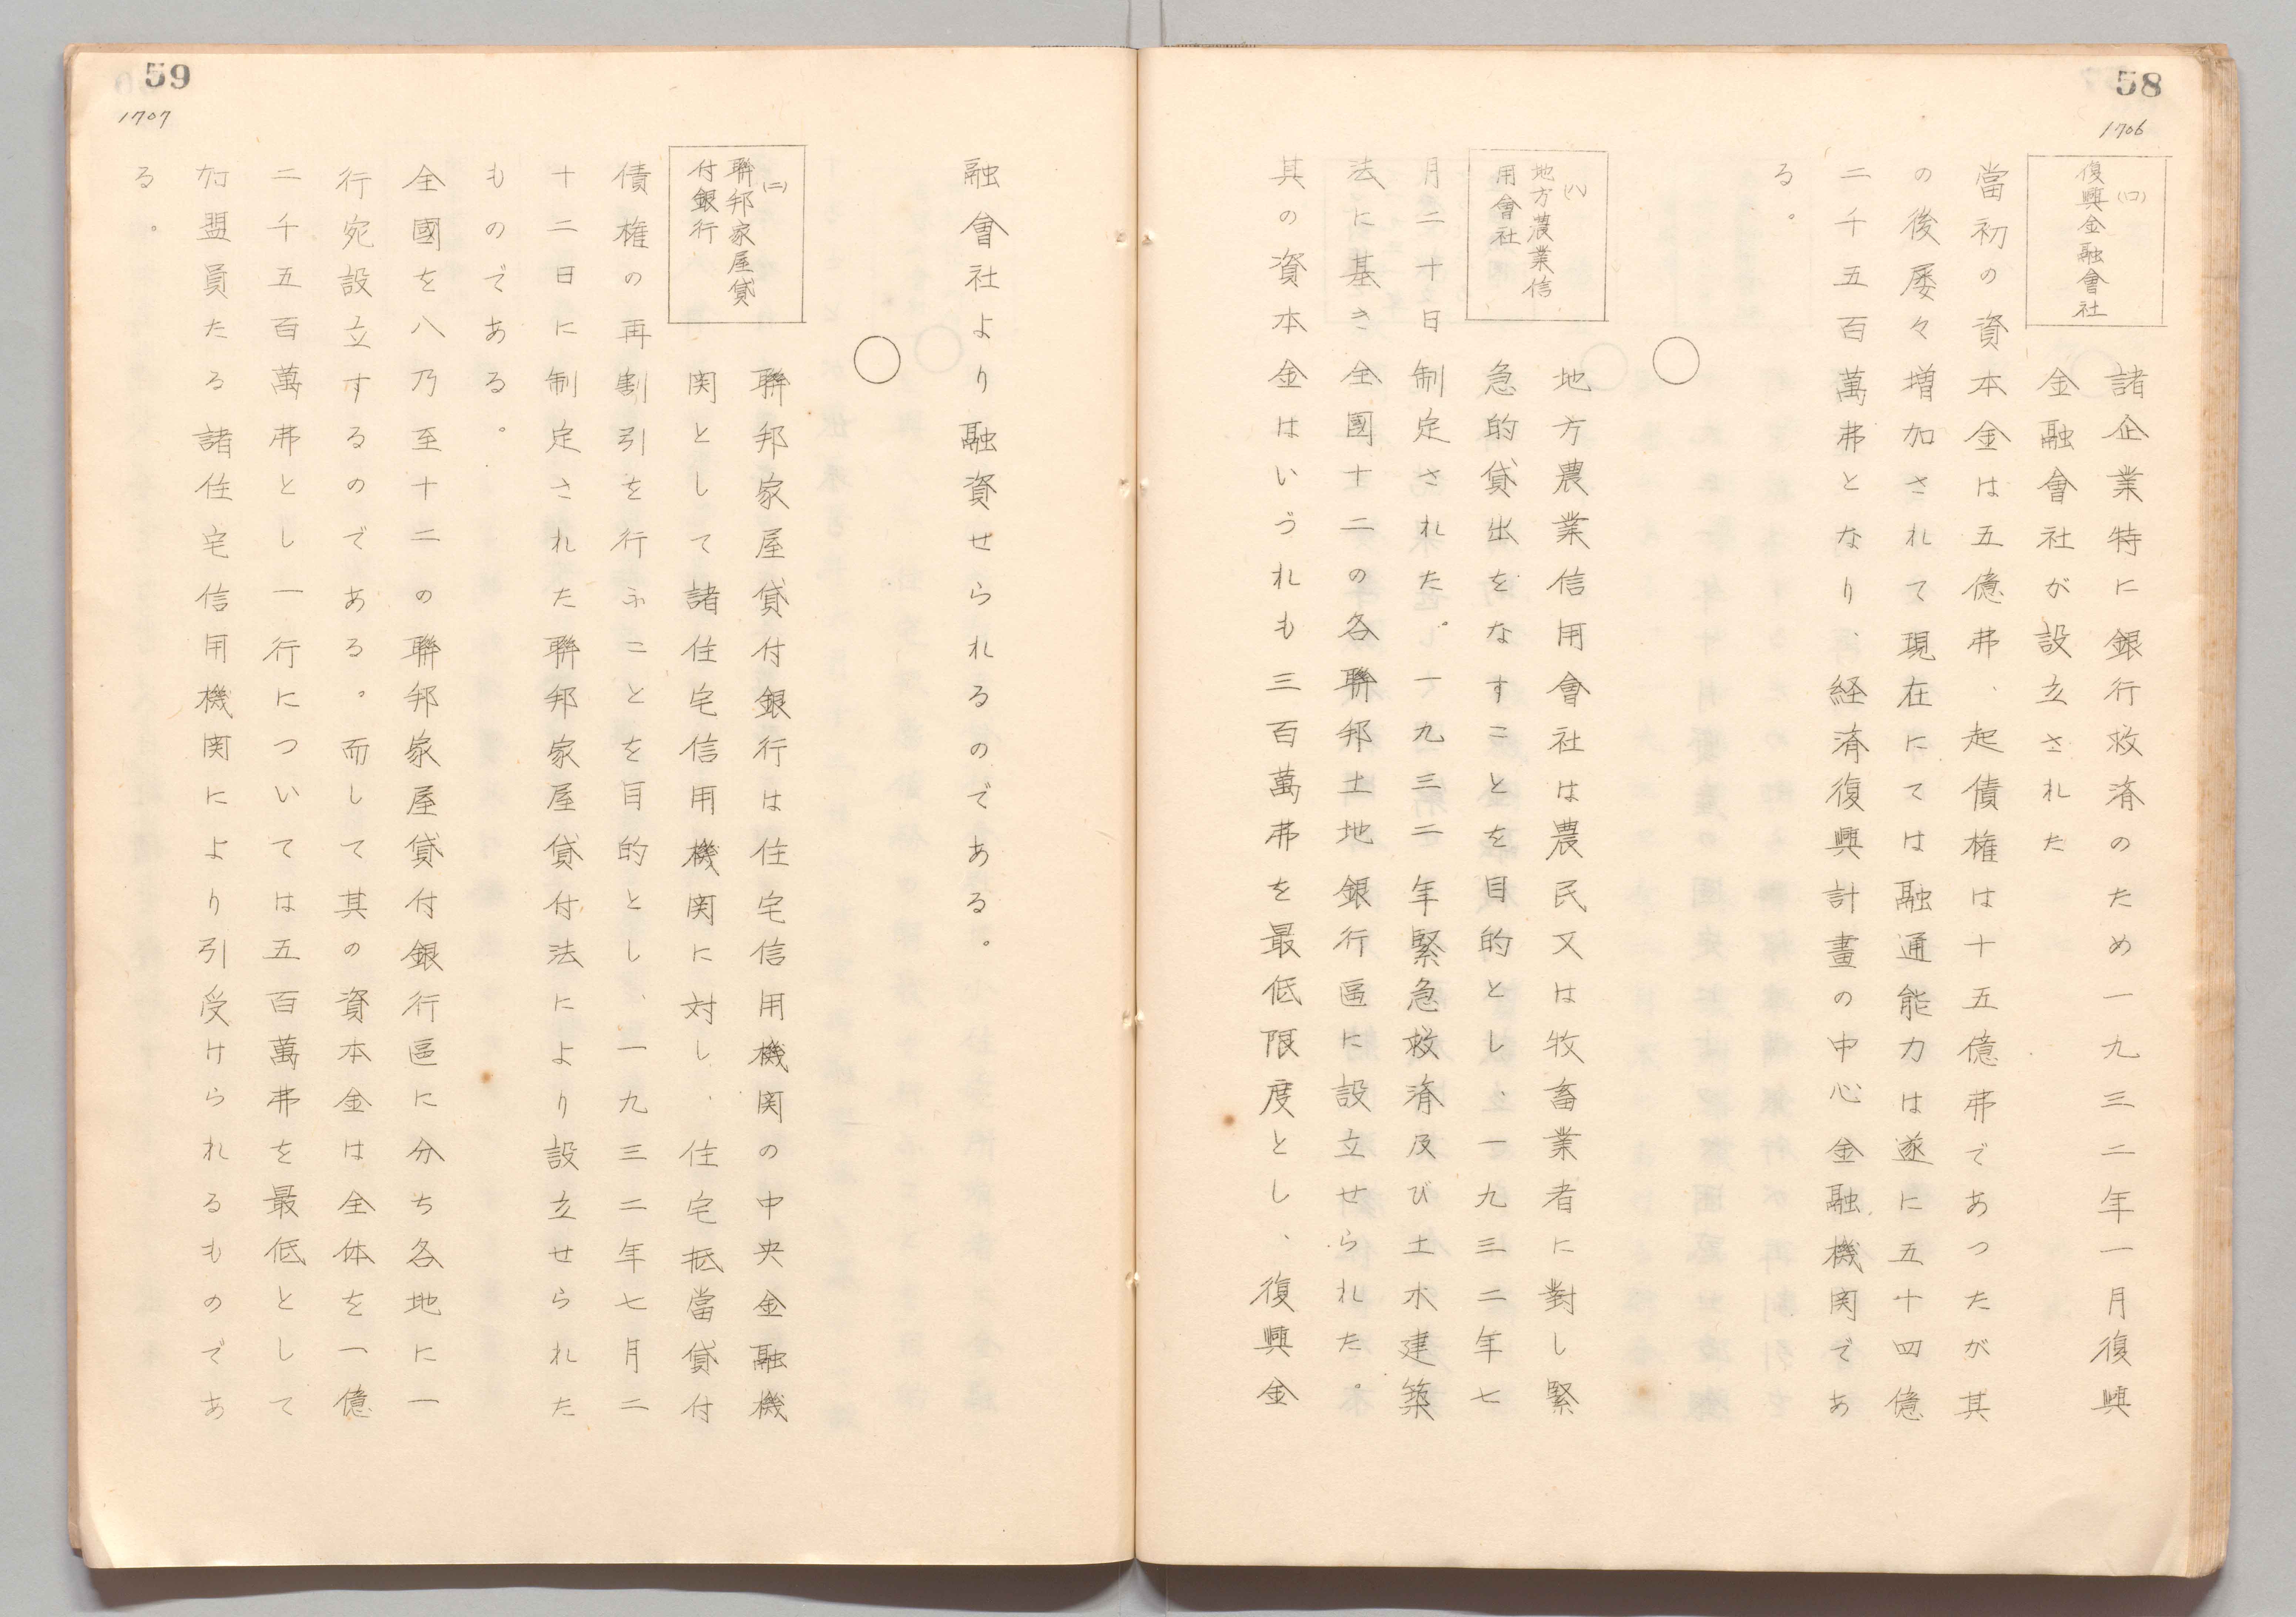 58
1706
(ロ)
復興金融會社
諸企業特に銀行救済のため一九三二年一月復興
金融會社が設立された
當初の資本金は五億弗、起債権は十五億弗であつたが其
の後屡々増加されて現在にては融通能力は遂に五十四億
二千五百萬弗となり、経済復興計畫の中心金融機関であ
る。
(ハ)
地方農業信
用會社
地方農業信用會社は農民又は牧畜業者に對し緊
急的貸出をなすことを目的とし、一九三二年七
月二十日制定された。一九三二年緊急救済及び土木建築
法に基き全國十二の各聯邦土地銀行區に設立せられた。
其の資本金はいづれも三百萬弗を最低限度とし、復興金
59
1707
融會社より融資せられるのである。
(ニ)
聯邦家屋貸
付銀行
聯邦家屋貸付銀行は住宅信用機関の中央金融機
関として諸住宅信用機関に対し、住宅抵當貸付
債権の再割引を行ふことを目的とし、一九三二年七月二
十二日に制定された聯邦家屋貸付法により設立せられた
ものである。
全國を八乃至十二の聯邦家屋貸付銀行區に分ち各地に一
行宛設立するのである。而して其の資本金は全体を一億
二千五百萬弗とし一行については五百萬弗を最低として
加盟員たる諸住宅信用機関により引受けられるものであ
る。